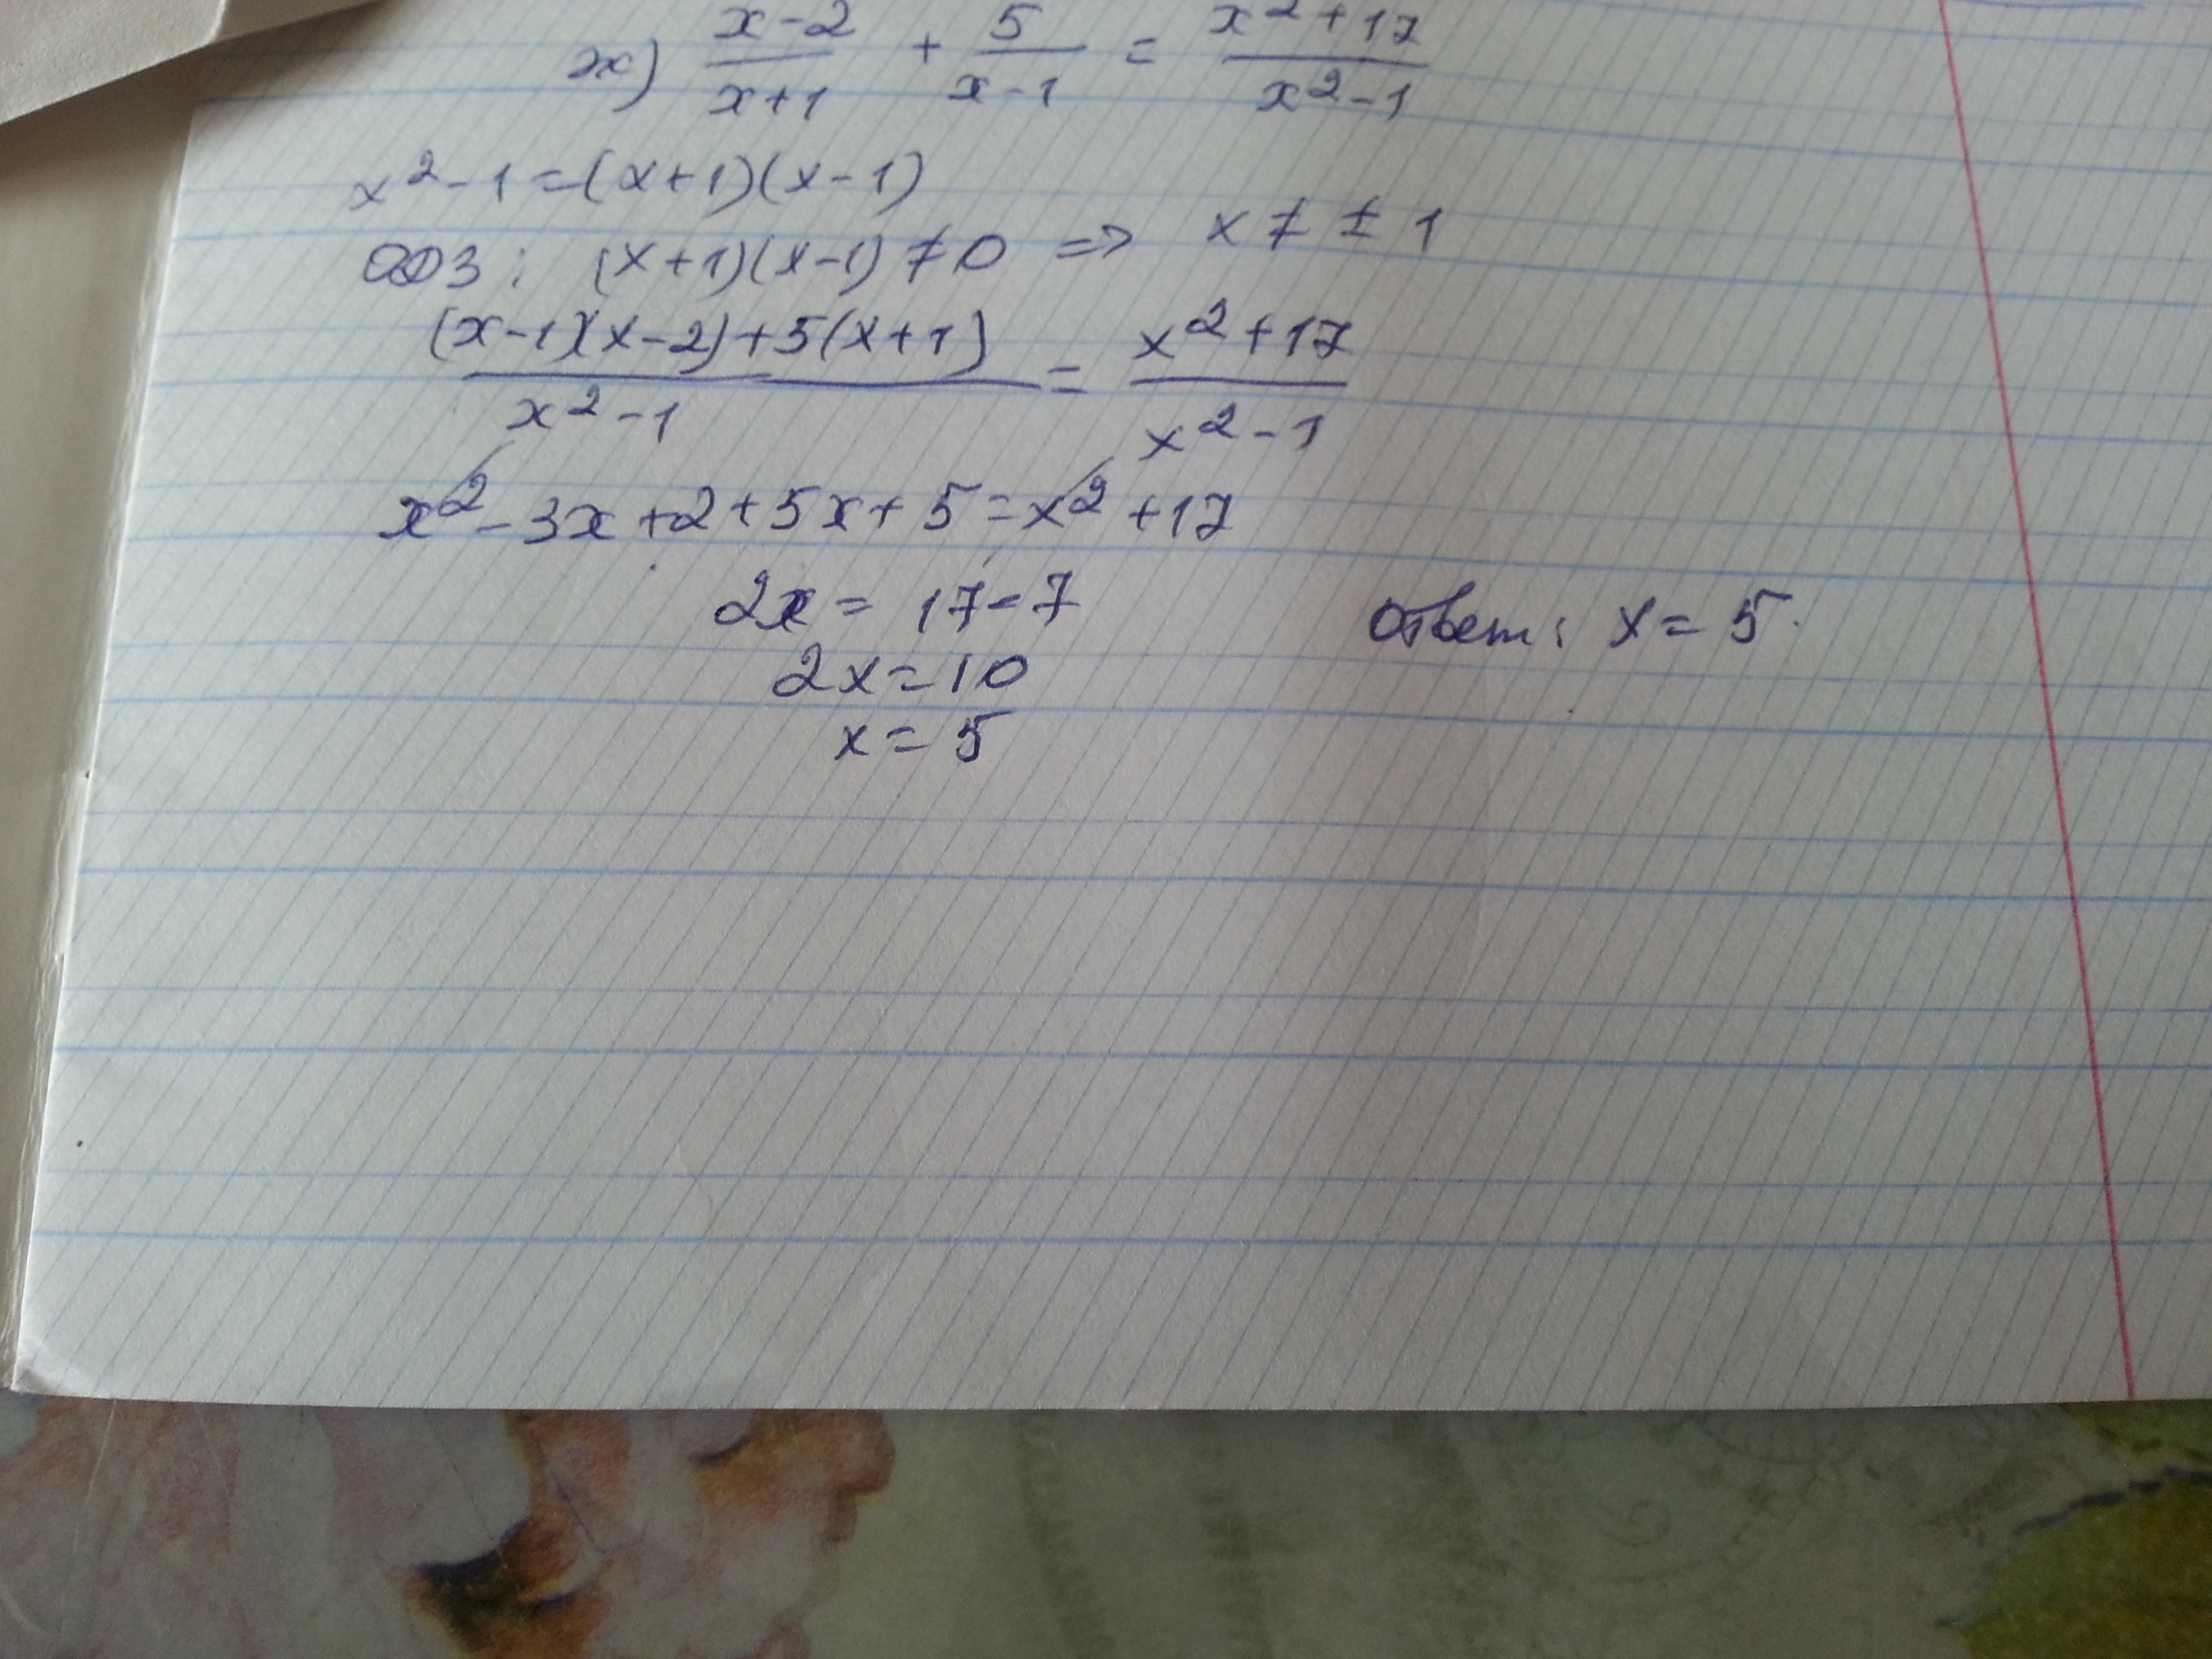 ж) x-2/x+1 + 5/x-1 = x²+17/x²-1
x²-1=(x+1)(x-1)
ОДЗ: (x+1)(x-1)≠0 => x ≠ ± 1
(x-1)(x-2)+5(x+1)/x²-1 = x²+17/x²-1
x²-3x+2+5x+5=x²+17
2x= 17-7
2x=10
x=5
Ответ: x=5.